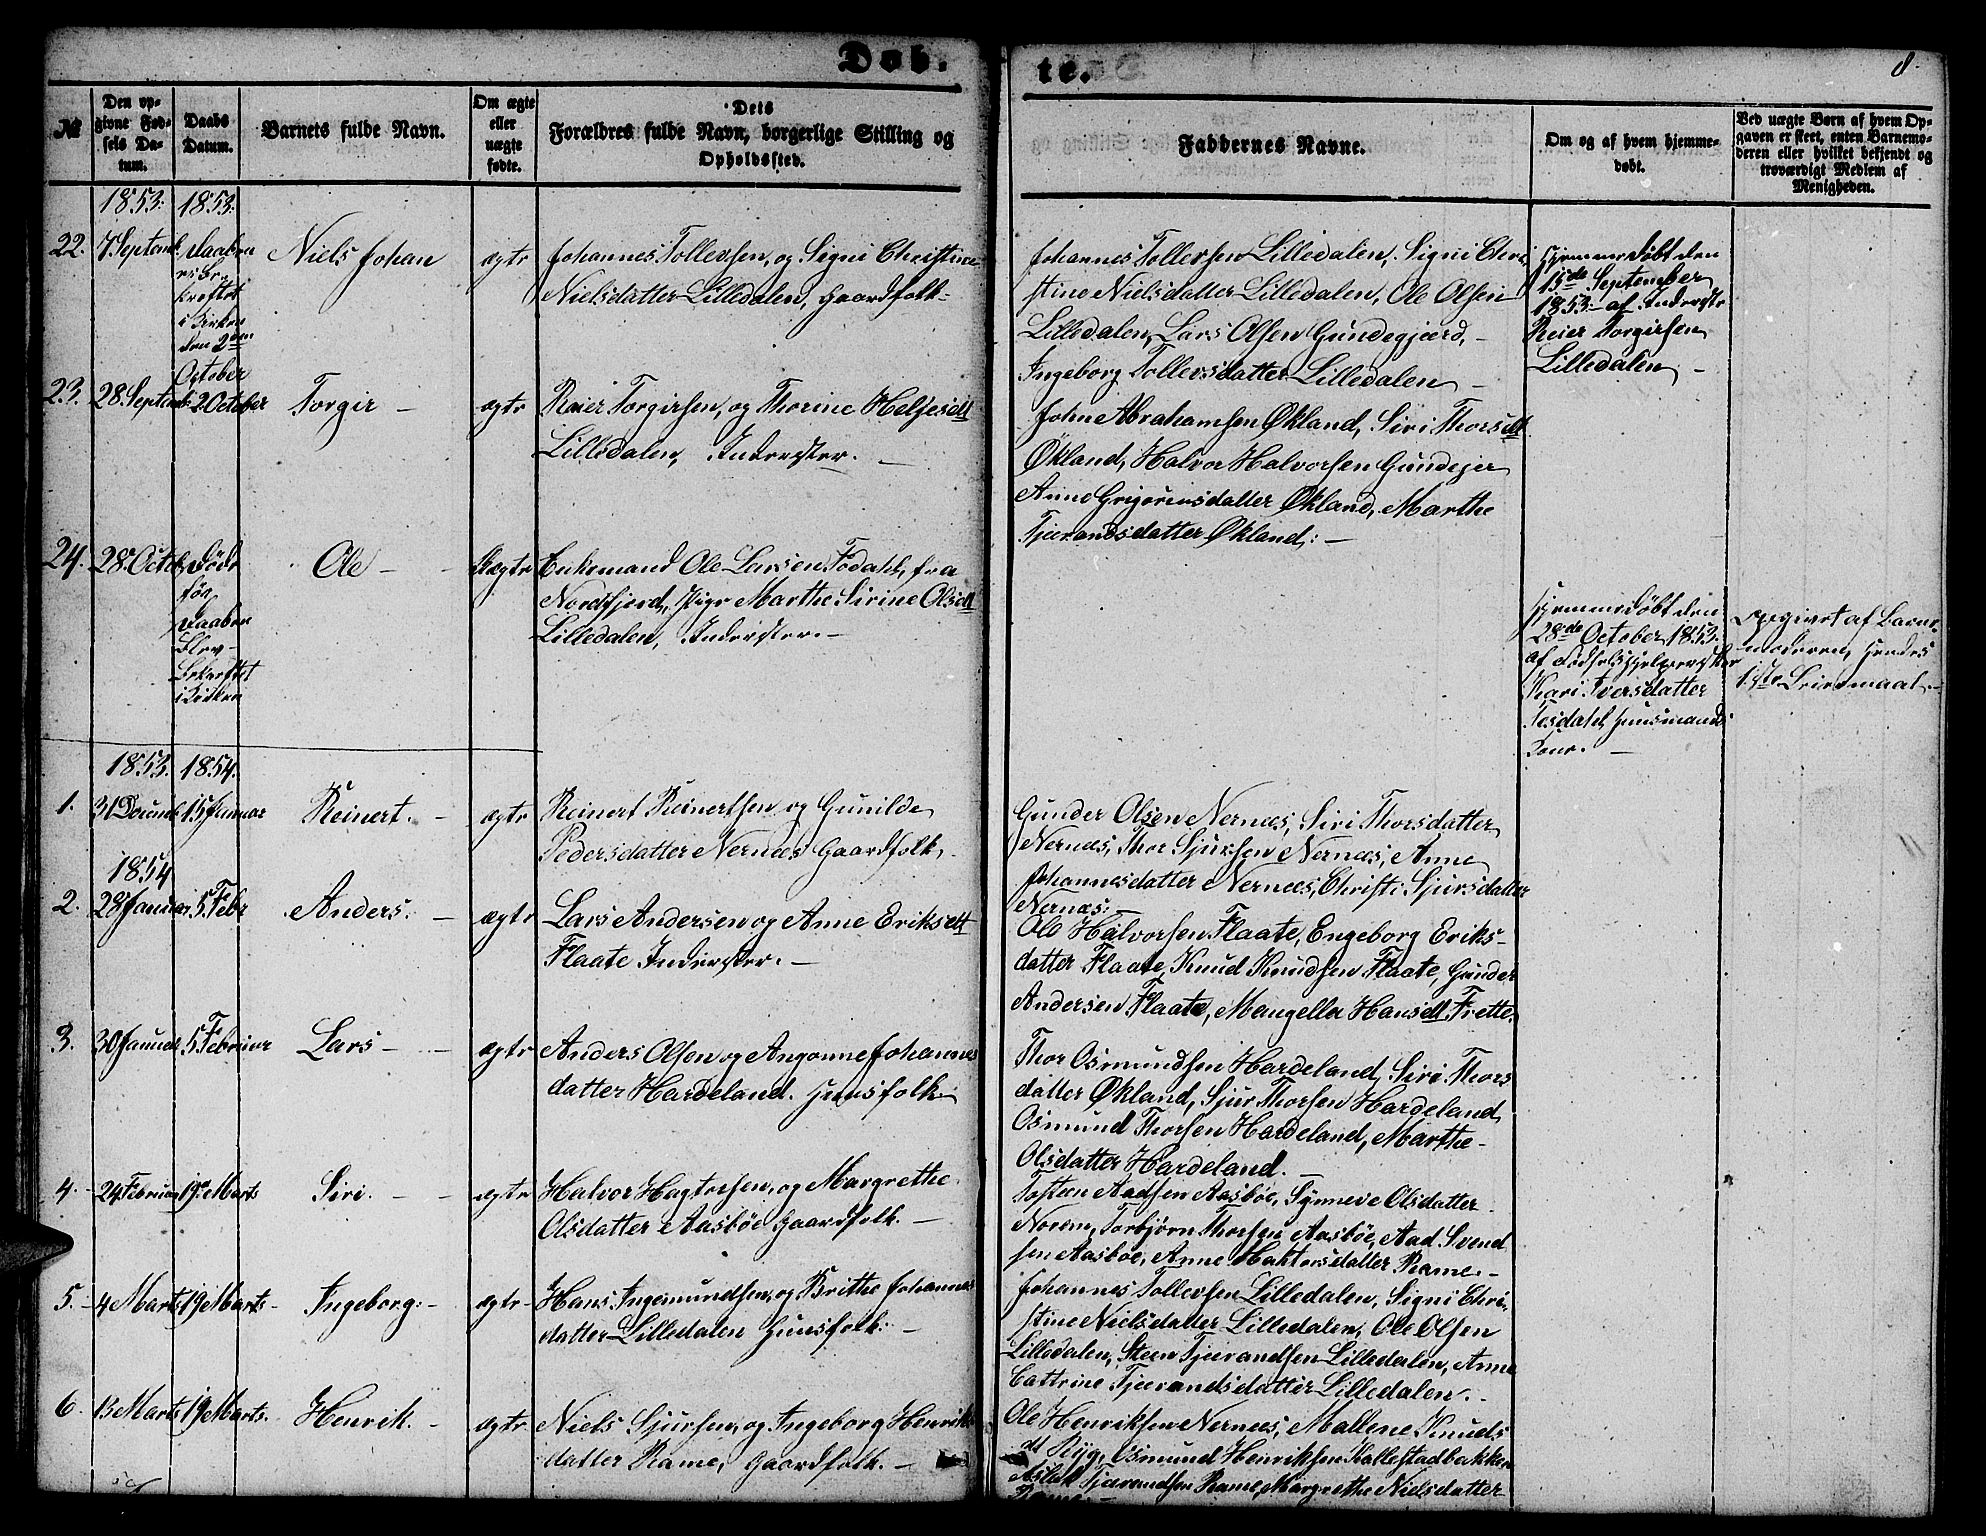 Døb-
te.
8
№
Den op-
givne Fød-
sels Da-
tum.
Daabs
Datum.
Barnets fulde Navn.
Om ægte
eller
uægte
fødte.
Dets
Forældres fulde Navn, borgerlige Stilling og
Opholdssted.
Faddernes Navne.
Om og af hvem hjemme-
døbt.
Ved uægte Børn af hvem Op-
gaven er skeet, enten Barnemo-
deren eller hvilket bekjendt og
troværdigt Medlem af
Menigheden.
1853. 1853.
22. 7 Septemb. Daaben
i Kirken
den 2den
October
Niels Johan
ægte
Johannes Tollevsen, og Signi Christine
Nielsdatter Lilledalen, Gaardfolk.
Johannes Tollevsen Lilledalen, Signi Chri-
stine Nielsdatter Lilledalen, Ole Olsen
Lilledalen, Lars Olsen Gundegjærd, -
Ingeborg Tollevsdatter Lilledalen -
Hjemmedøbt den
15de September
1853 - af Inderste
Reier Torgirsen
Lilledalen -
23. 28 Septemb. 2 October
Torgir -
ægte
Reier Torgirsen, og Thorine Helgesdtt
Lilledalen, Inderster. -
John Abrahamsen Økland, Siri Thorsdtt
Økland, Halvor Halvorsen Gundejer
Anne Grigoriusdatter Økland, Marthe
Tjærandsdatter Økland: -
24. 28 Octob. Døde
før
Daaben
blev
bekræftet
i Kirken
Ole -
Uægte
Enkemand Ole Larsen Fødahl, fra
Nordfjord, Pige Marthe Sirine Olsdtt
Lilledalen, Inderster. -
Hjemmedøbt den
28de October 1853.
af Fødselshjelperske
Kari Iversdatter
Huusmands
Kone. -
opgivet af Barne-
moderen, hendes
1ste Leiermaal. -
1853. 1854.
1. 31 Decemb. 15 Januar
Reinert. -
ægte
Reinert Reinertsen og Gunilde
Pedersdatter Nernæs Gaardfolk.
Gunder Olsen Nernæs, Siri Thorsdatter
Nernæs, Thor Sjursen Nernæs, Anne
Johannesdatter Nernæs, Christi Sjursdatter
Nernæs: -
1854
2. 28 Januar 5 Febr
Anders. -
ægte
Lars Andersen og Anne Eriksdtt
Flaate Inderster. -
Ole Halvorsen Flaate, Engeborg Eriks-
datter Flaate, Knud Knudsen Flaate, Gunder
Andersen Flaate, Mangella Hansdtt Frette.
3. 30 Januar 5 Februar
Lars -
ægte
Anders Olsen og Angonne Johannes
datter Hardeland. Huusfolk.
Thor Osmundsen Hardeland, Siri Thors
datter Økland, Sjur Thorsen Hardeland
Osmund Thorsen Hardeland, Marthe
Olsdatter Hardeland. -
4. 24 Februar 19 Marts
Siri. -
ægte
Halvor Hagtorsen, og Margrethe
Olsdatter Aasbøe Gaardfolk. -
Tosteen Aadsen Aasbøe, Synneve Olsdatter
Norem, Torbjørn Thorsen Aasbøe, Aad Svend
sen Aasbøe, Anne Haktorsdatter Rame. -
5. 4 Marts 19 Marts -
Ingeborg: -
ægte -
Hans Ingemundsen, og Brithe Johannes
datter Lilledalen Huusfolk: -
Johannes Tollevsen Lilledalen, Signi Chri-
stine Nielsdatter Lilledalen, Ole Olsen
Lilledalen, Steen Tjærandsen Lilledalen, Anne
Cattrine Tjærandsdatter Lilledalen. -
6. 13 Marts 19 Marts.
Henrik. -
ægte
Niels Sjursen, og Ingeborg Henriks
datter Rame, Gaardfolk. -
Ole Henriksen Nernæs, Mallene Knuds
dt Ryg, Osmund Henriksen Kallestadbakken
Aslak Tjærandsen Rame, Margrethe Nielsdatter
Rame. -